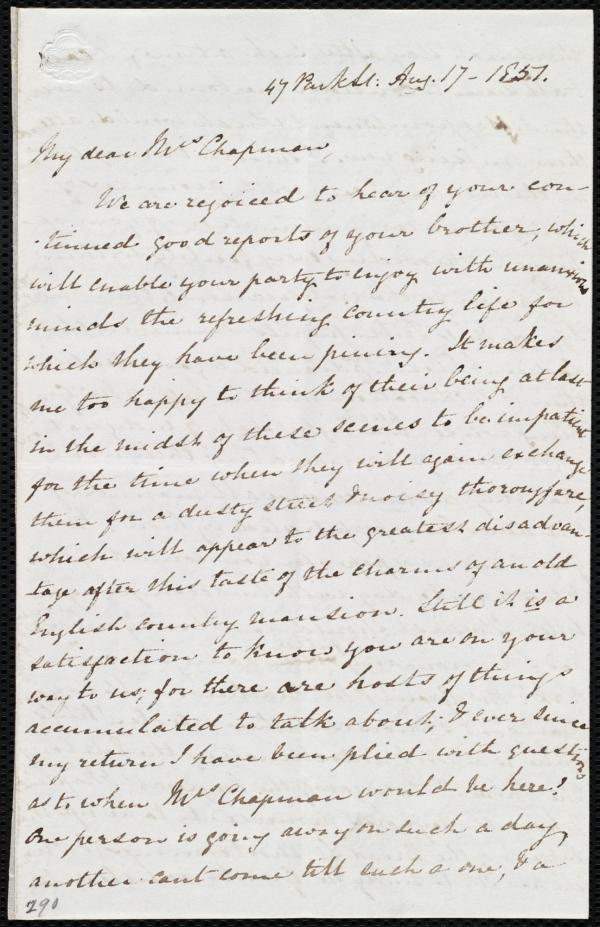 47 Park St: Aug. 17 - 1851.
My dear Mrs Chapman,
We are rejoiced to hear of your con-
-tinued good reports of your brother, which
will enable your party to enjoy with unanxious
minds the refreshing country life for
which they have been pining. It makes
me too happy to think of their being at last
in the midst of these scenes to be impatient
for the time when they will again exchange
them for a dusty street & noisy thoroughfare,
which will appear to the greatest disadvan-
tage after this taste of the charms of an old
English country mansion. Still it is a
satisfaction to know you are on your
way to us; for there are hosts of things
accumulated to talk about; & ever since
my return I have been plied with questions
as to when Mrs Chapman would be here!
One person is going away on such a day,
another cant come till such a one, & a
290